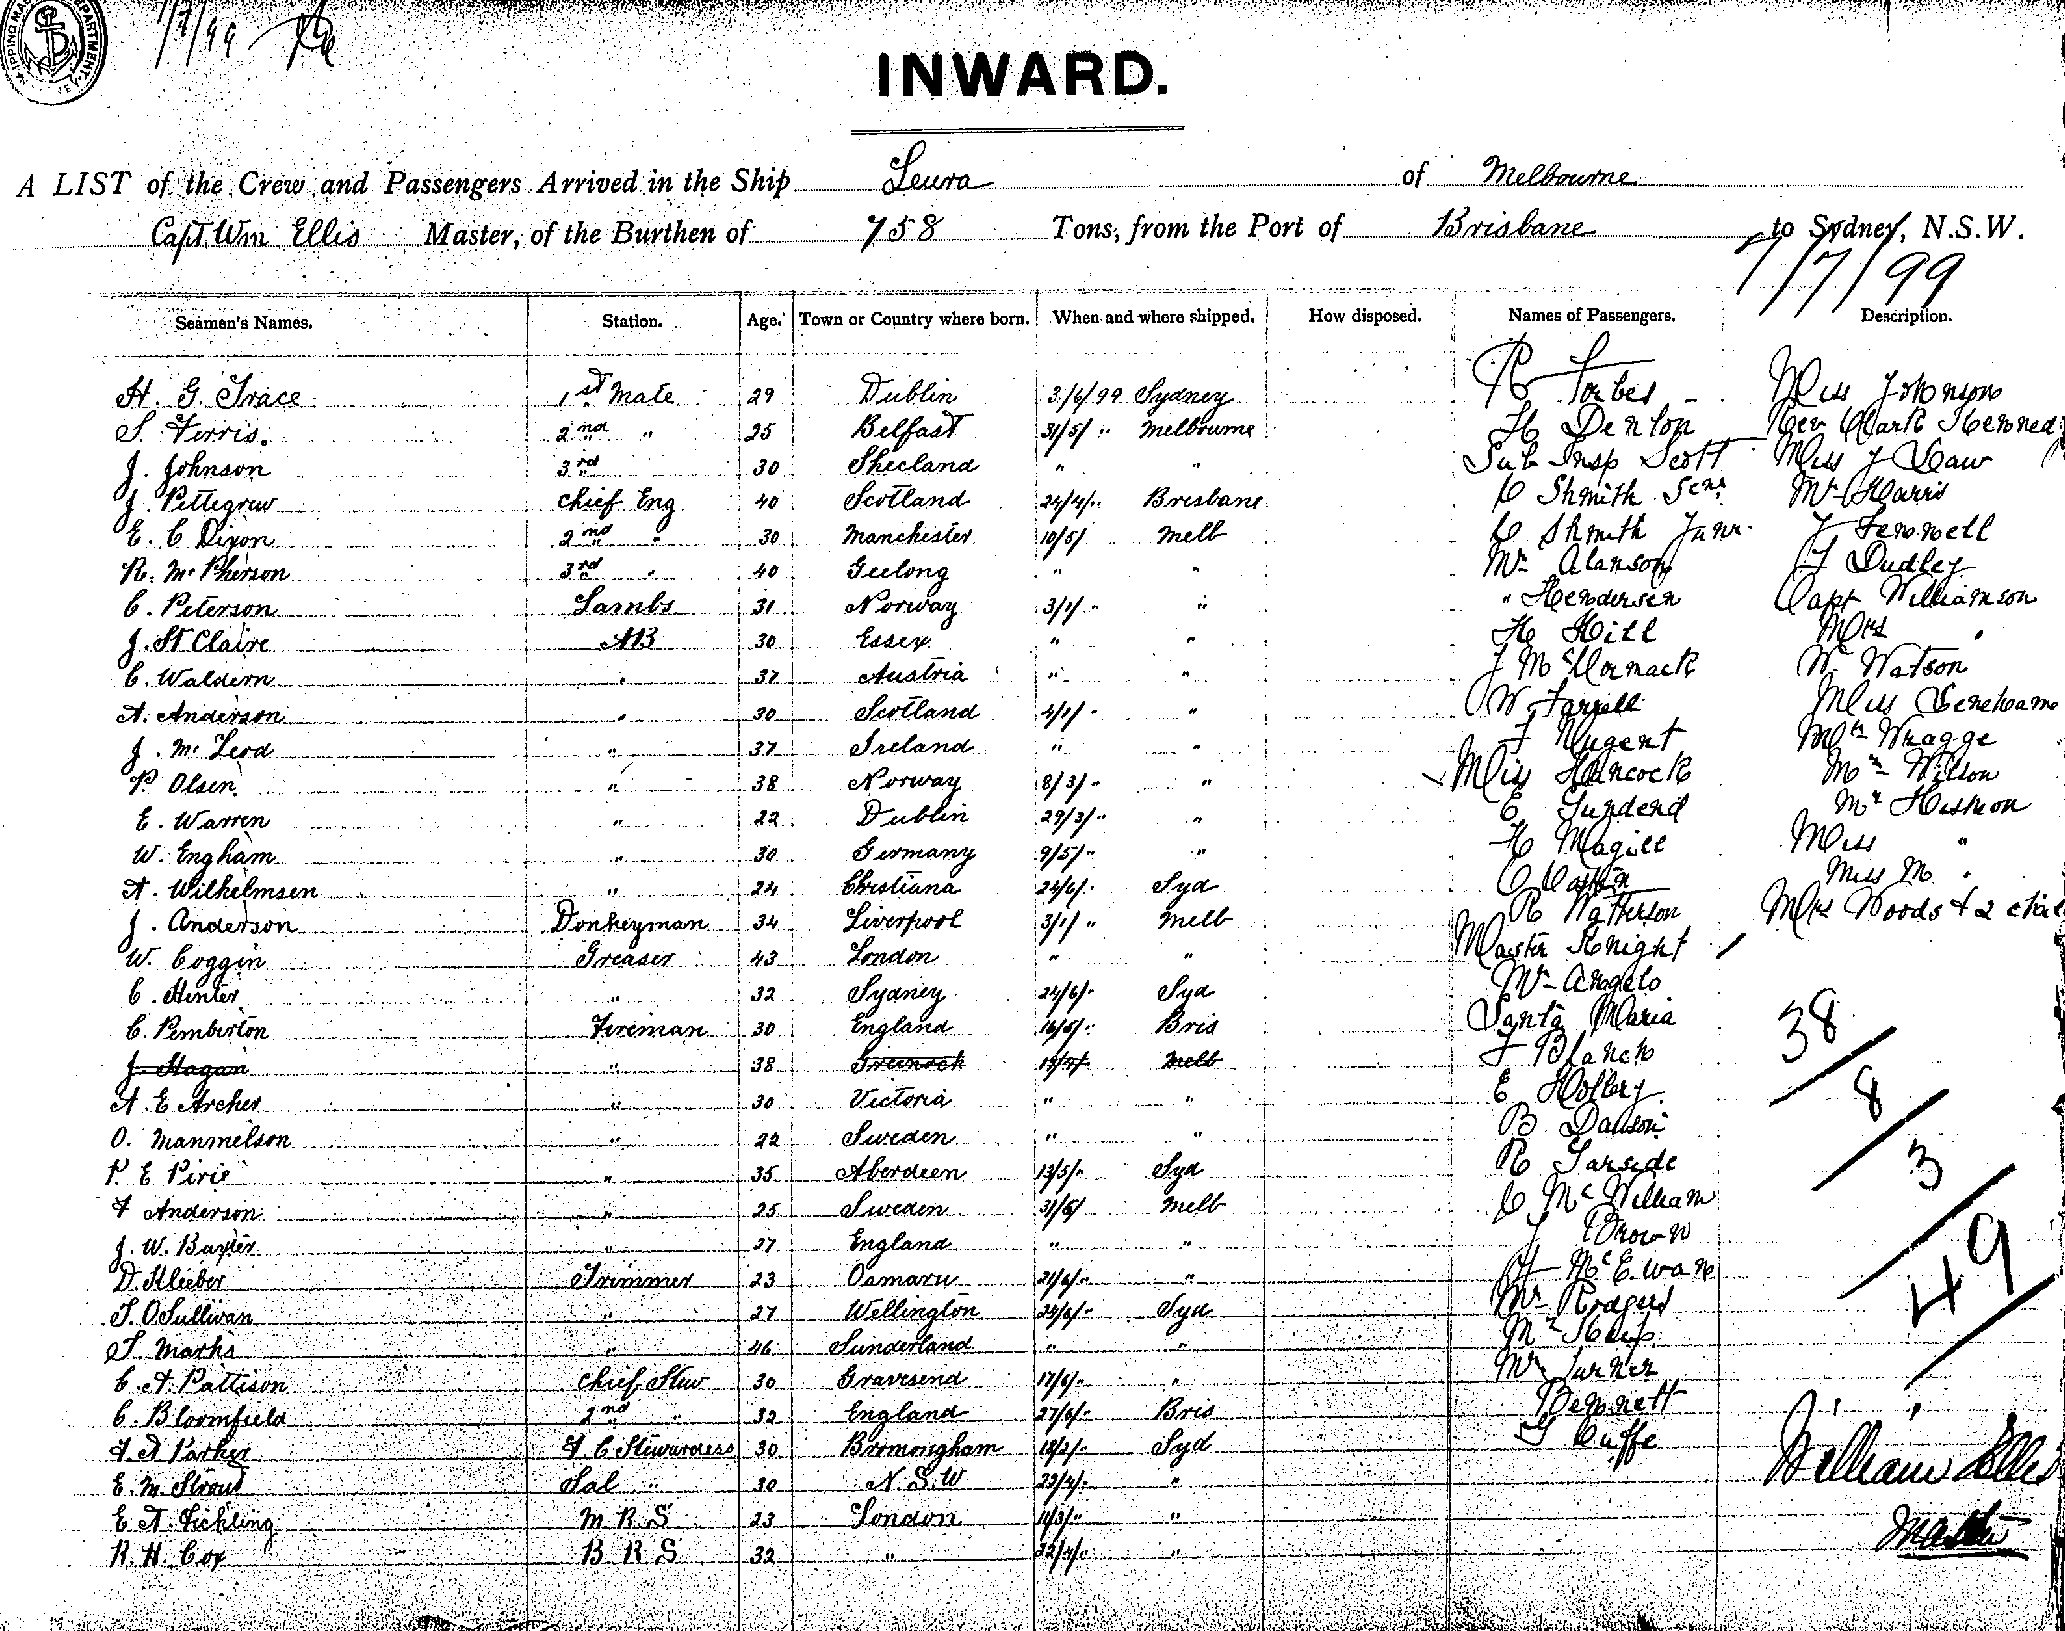 1/7/99
INWARD.
A LIST of the Crew and Passengers Arrived in the Ship Leura of Melbourne
Capt Wm Ellis Master, of the Burthen of 758 Tons, from the Port of Brisbane to Sydney, N.S.W.
1/7/99
Seamen's Names. Station. Age. Town or Country where born. When and where shipped. How disposed. Names of Passengers. Description.
H. G. Trace 1st Mate 29 Dublin 3/6/99 Sydney R Forbes Miss Johnson
S. Ferris. 2nd " 25 Belfast 31/5/ " Melbourne H Denton Rev Clark Kenned
J. Johnson 3rd 30 Shecland " " Sub Insp Scott Miss J Law
J. Pettegrew Chief Eng 40 Scotland 24/4/ " Brisbane C Shmith Senr Mr Harris
E. C Dixon 2nd " 30 Manchester 10/5/ Melb C Shmith Junr. J Fennell
R. Mc Pherson 3rd " 40 Geelong " " Mr Alanson J Dudley
C. Peterson Lambs 31 Norway 3/1/ " " " Hendersen Capt Williamson
J. St Claire AB 30 Essex " " H Hill Mrs "
C. Waldern " 37 Austria " " J McCormack W. Watson
A. Anderson " 30 Scotland 4/1/ " " W Farrell Miss Lenehame
J. Mc Leod " 37 Ireland " " J Nugent Mr Wragge
P. Olsen " 38 Norway 8/3/ " " Miss Hancock Mr Wilson
E. Warren " 22 Dublin 29/3/ " " E Mr Hishon
W. Engham " 30 Germany 9/5/ " " H Magill Miss "
A. Wilhelmsen " 24 Christiana 24/6/ " Syd C Miss M "
J. Anderson Donkeyman 34 Liverpool 3/1/ " Melb R Watterson Mrs Woods & 2 chil
W. Coggin Greaser 43 London " " Master Knight
C. Hinter " 32 Sydney 24/6/ " Syd Mr Angelo
C. Pemberton Fireman 30 England 16/5/ " Bris Santa Maria
J. Hagan " 38 Greenock Melb F Blanch
A. E Archer " 30 Victoria " " E Hollery
O. Manmelson " 22 Sweden " " B Dawson
P. E Pirie " 35 Aberdeen 13/5/ " Syd R Garside
F Anderson " 25 Sweden 31/5/ Melb C McWilliam
J. W. Baxter " 27 England " " J Brown
D. Kleeber Trimmer 23 Oamaru 21/6/ " " H McEwan
T. OSullivan " 27 Wellington 24/6/ " Syd Mr Rodgers
T. Marks " 46 Sunderland " " Mr
C. A. Pattison Chief Stew 30 Gravesend 17/6/ " " Mr Turner
C. Bloomfield 2nd " 32 England 27/6/ " Bris Bennett
F. A Parker F. C Stewardess 30 Bromongham 18/2/ " Syd J Cuffe
E. M. Stroud Sal " 30 N. S. W 22/4/ " "
E A. Tickling M R S 23 London 11/3/ " "
R. H. Cox B R S 32 " 22/4/ " "
38
8
3
49
William Ellis
Master